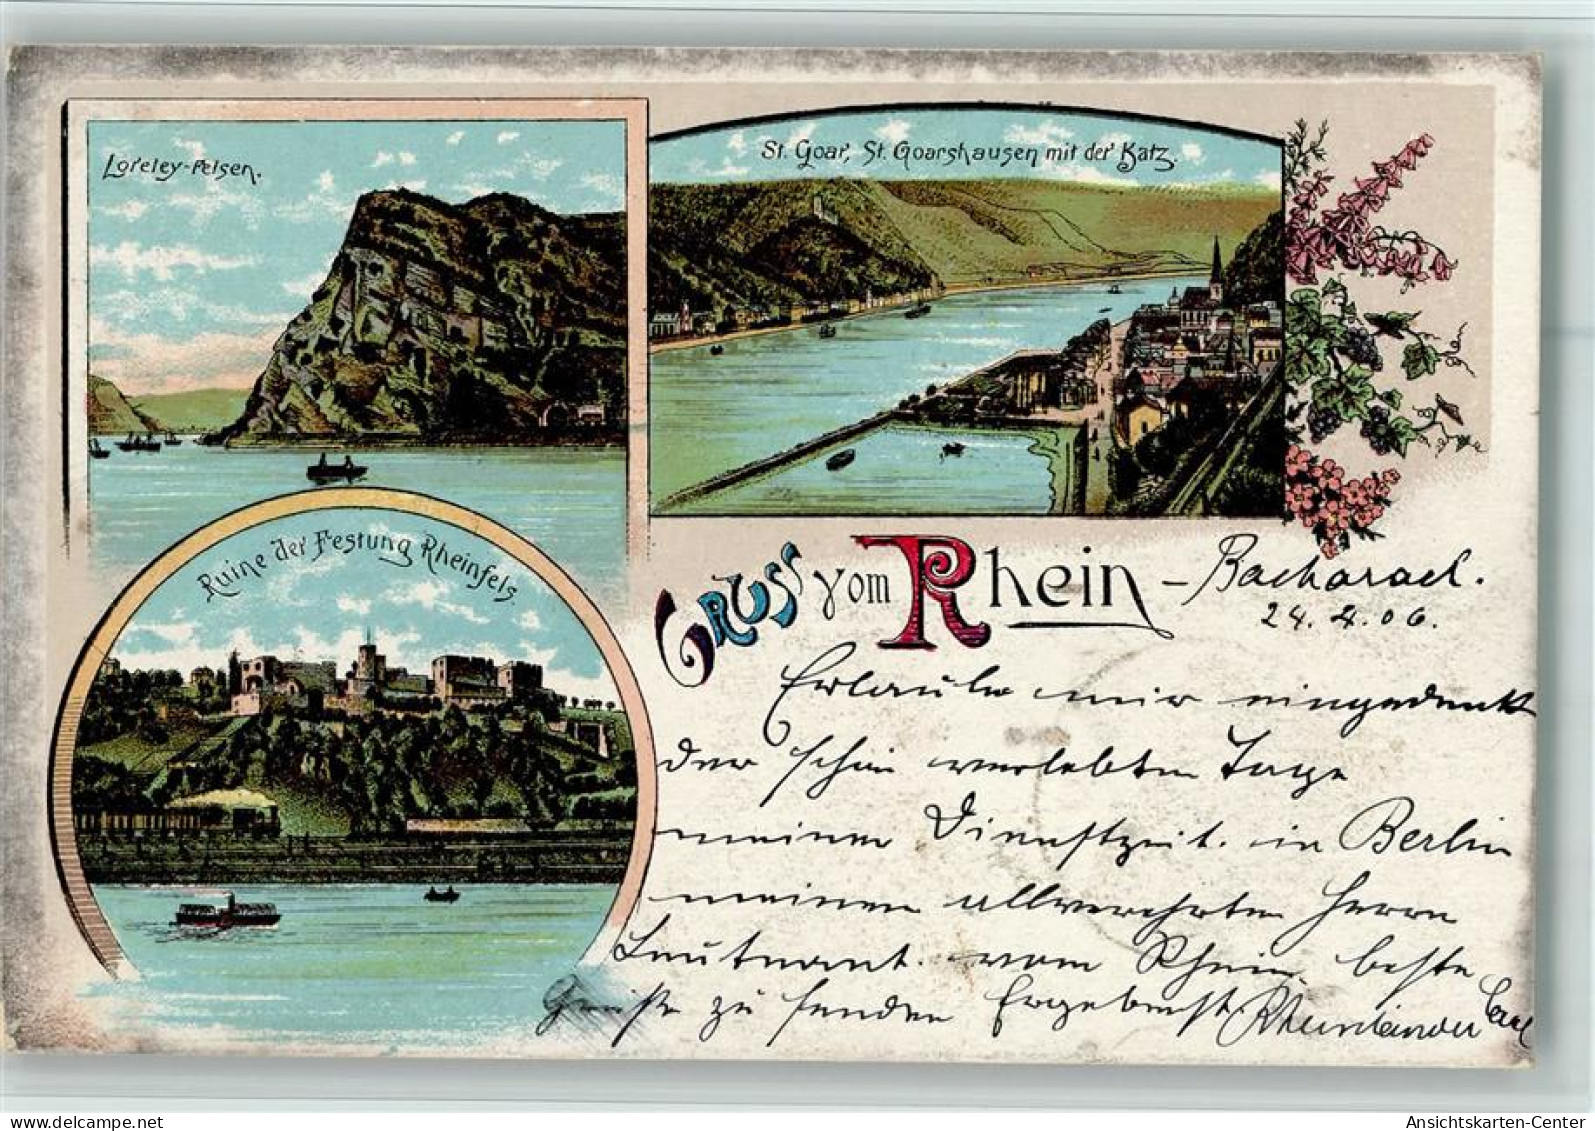 Loreley-Felsen.
St. Goar, St. Goarshausen mit der Katz.
Ruine der Festung Rheinfels.
Gruss vom Rhein – Bacharach.
24. 4. 06.
Erlaube mir eingedenk
der schön verlebten Tage
meiner Dienstzeit. in Berlin
meinem allverehrten Herrn
Leutnant. vom Rhein beste
Grüße zu senden Ergebenst. Rheinländer Carl
delcampe.net
posti
Ansichtskarten-Center